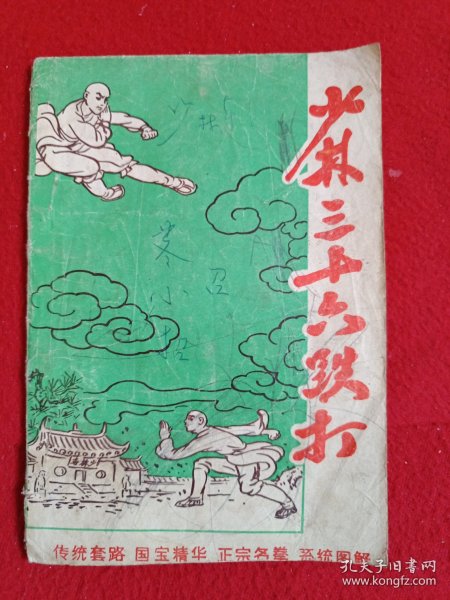 少林三十六跌打
少林
小
少林寺
传统套路 国宝精华 正宗名拳 系统图解
孔夫子旧书网
www.kongfz.com